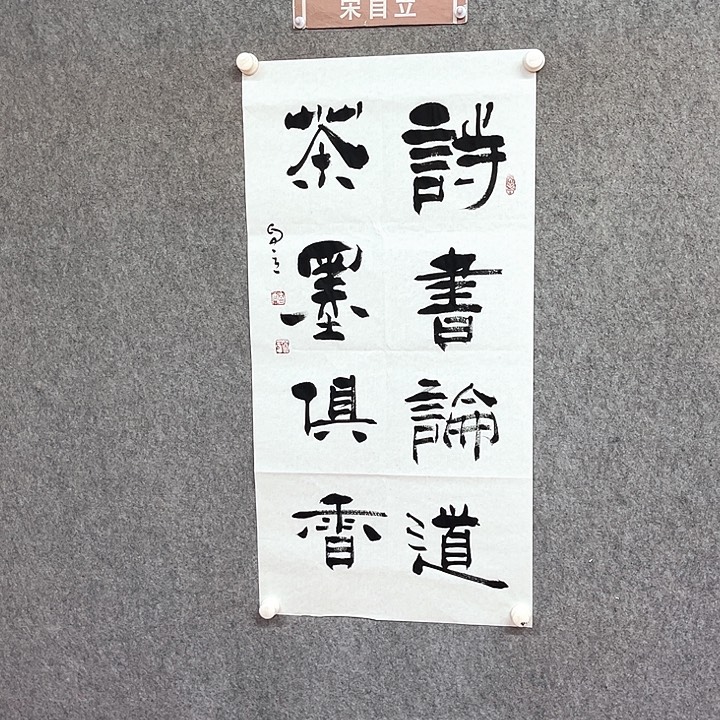 宋自立
詩書論道
茶墨俱香
自立